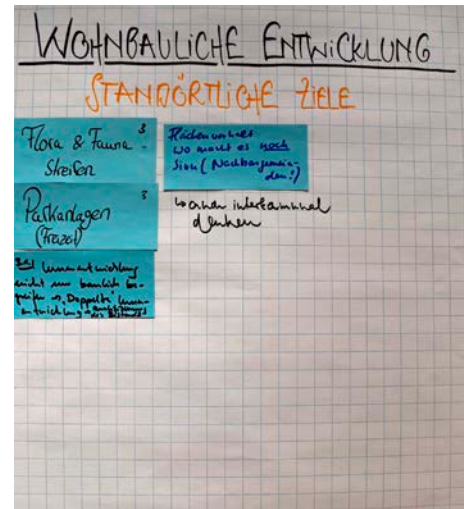 WOHNBAULICHE ENTWICKLUNG
STANDÖRTLICHE ZIELE
Flora & Fauna - 3
Streifen
Parkanlagen 3
(Freizeit)
Innenentwicklung
nicht nur baulich be-
greifen "Doppelte" Innen-
entwicklung
wo macht es noch
Sinn (Nachbargemein-
den!)
↳ interkommunal
denken